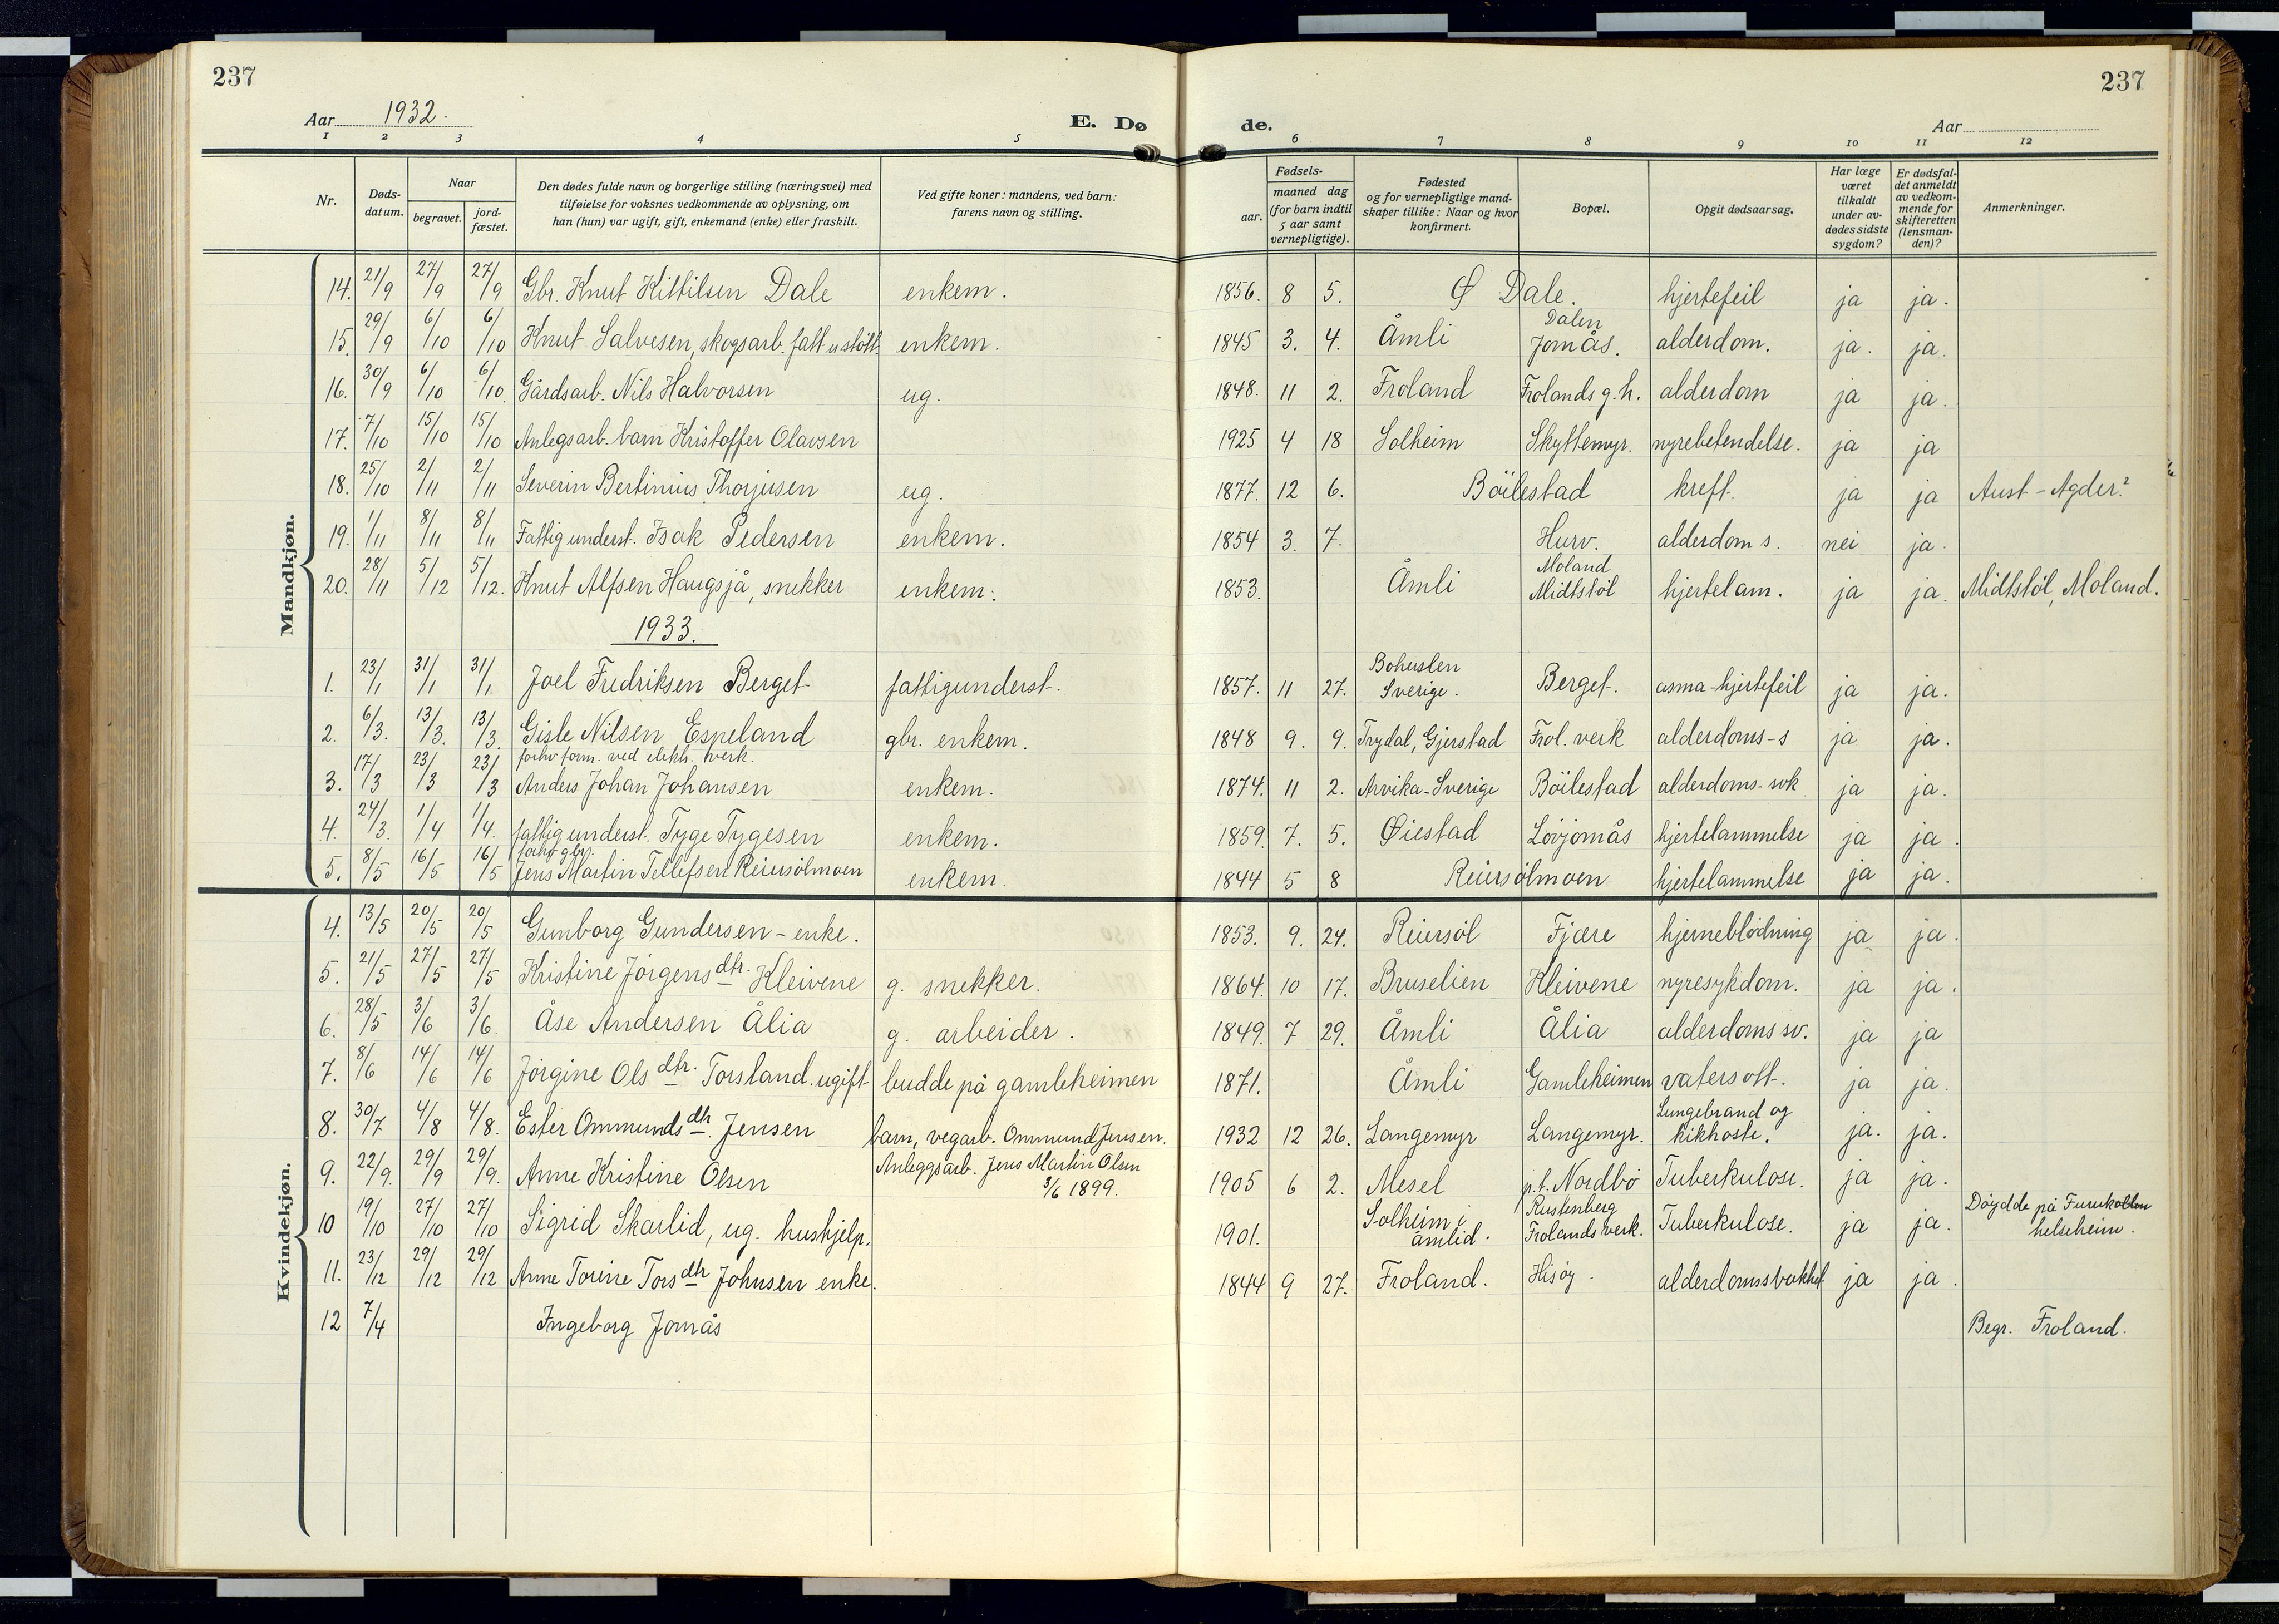 237
237
Aar 1932.
E. Dø
de.
Aar
1 2 3 4 5 6 7 8 9 10 11 12
Nr.
Døds-datum.
Naar
begravet.
jord-fæstet.
Den dødes fulde navn og borgerlige stilling (næringsvei) med
tilføielse for voksnes vedkommende av oplysning, om
han (hun) var ugift, gift, enkemand (enke) eller fraskilt.
Ved gifte koner: mandens, ved barn:
farens navn og stilling.
Fødsels-
aar.
maaned dag
(for barn indtil
5 aar samt
vernepligtige).
Fødested
og for vernepligtige mand-
skaper tillike: Naar og hvor
konfirmert.
Bopæl.
Opgit dødsaarsag.
Har læge
været
tilkaldt
under av-
dødes sidste
sygdom?
Er dødsfal-
det anmeldt
av vedkom-
mende for
skifteretten
(lensman-
den)?
Anmerkninger.
Mandkjøn.
14. 21/9 27/9 27/9 Gbr. Knut Kittilsen Dale enkem. 1856. 8 5. Ø Dale. hjertefeil ja ja.
15. 29/9 6/10 6/10 Knut Salvesen, skogsarb. fatt. u stött enkem. 1845 3. 4. Åmli Dalen Jomås. alderdom. ja. ja.
16. 30/9 6/10 6/10. Gårdsarb. Nils Halvorsen ug. 1848. 11 2. Froland Frolands g.h. alderdom ja ja.
17. 7/10 15/10 15/10 Anlegsarb. barn Kristoffer Olavsen 1925 4 18 Solheim Skyttemyr. nyrebetendelse. ja ja
18. 25/10 2/11 2/11 Severin Bertinius Thorjusen ug. 1877. 12 6. Böilestad kreft. ja ja Aust-Agder?
19. 1/11 8/11 8/11 Fattigunderst. Isak Pedersen enkem. 1854 3. 7. Hurv. alderdom s. nei ja.
20. 28/11 5/12 5/12. Knut Alfsen Haugsjå, snekker enkem. 1853. Åmli Moland Midtstöl hjertelam. ja ja. Midtstöl, Moland.
1933.
1. 23/1 31/1 31/1 Joel Fredriksen Berget fattigunderst. 1857. 11 27. Bohuslen Sverige. Berget. asma-hjertefeil ja ja.
2. 6/3. 13/3. 13/3. Gisle Nilsen Espeland gbr. enkem. 1848 9. 9. Trydal, Gjerstad Frol. verk alderdoms-s ja ja.
forhv form. ved elektr. verk.
3. 17/3 23/3 23/3 Anders Johan Johansen enkem. 1874. 11 2. Arvika-Sverige Böilestad alderdoms-svk ja ja.
4. 24/3. 1/4 1/4. fattigunderst. Tyge Tygesen enkem. 1859. 7. 5. Øiestad Lövjomås hjertelammelse ja ja.
forhv gbr.
5. 8/5 16/5 16/5 Jens Martin Tellefsen Reiersölmoen enkem. 1844 5 8 Reiersölmoen hjertelammelse ja ja.
Kvindekjøn.
4. 13/5 20/5 20/5 Gunborg Gundersen - enke. 1853. 9. 24. Reiersöl Fjære hjerneblödning ja ja.
5. 21/5 27/5 27/5 Kristine Jörgensdtr. Kleivene g. snekker. 1864. 10 17. Bruselien Kleivene nyresykdom. ja ja.
6. 28/5 3/6 3/6 Åse Andersen Ålia g. arbeider. 1849. 7 29. Åmli Ålia alderdoms sv. ja ja
7. 8/6 14/6 14/6 Jörgine Olsdtr. Torsland. ugift budde på gamleheimen 1871. Åmli Gamleheimen vatersott. ja ja.
8. 30/7 4/8 4/8. Ester Ommundsdtr. Jensen barn, vegarb. Ommund Jensen. 1932 12 26. Langemyr Langemyr. Lungebrand og kikhoste. ja. ja.
9. 22/9. 29/9 29/9. Anne Kristine Olsen Anleggsarb. Jens Martin Olsen 3/6 1899. 1905 6 2. Mesel p.t. Nordbö Tuberkulose. ja ja.
10 19/10 27/10 27/10 Sigrid Skarlid, ug. hushjelp. 1901. Solheim i åmlid. Rustenberg Frolands verk. Tuberkulose. ja ja. Döydde på Furukollen helseheim.
11. 23/12 29/12 29/12 Anne Torine Torsdtr Johnsen enke. 1844 9 27. Froland. Hisöy. alderdomssvakhet ja ja.
12 7/4 Ingeborg Jomås Begr. Froland.